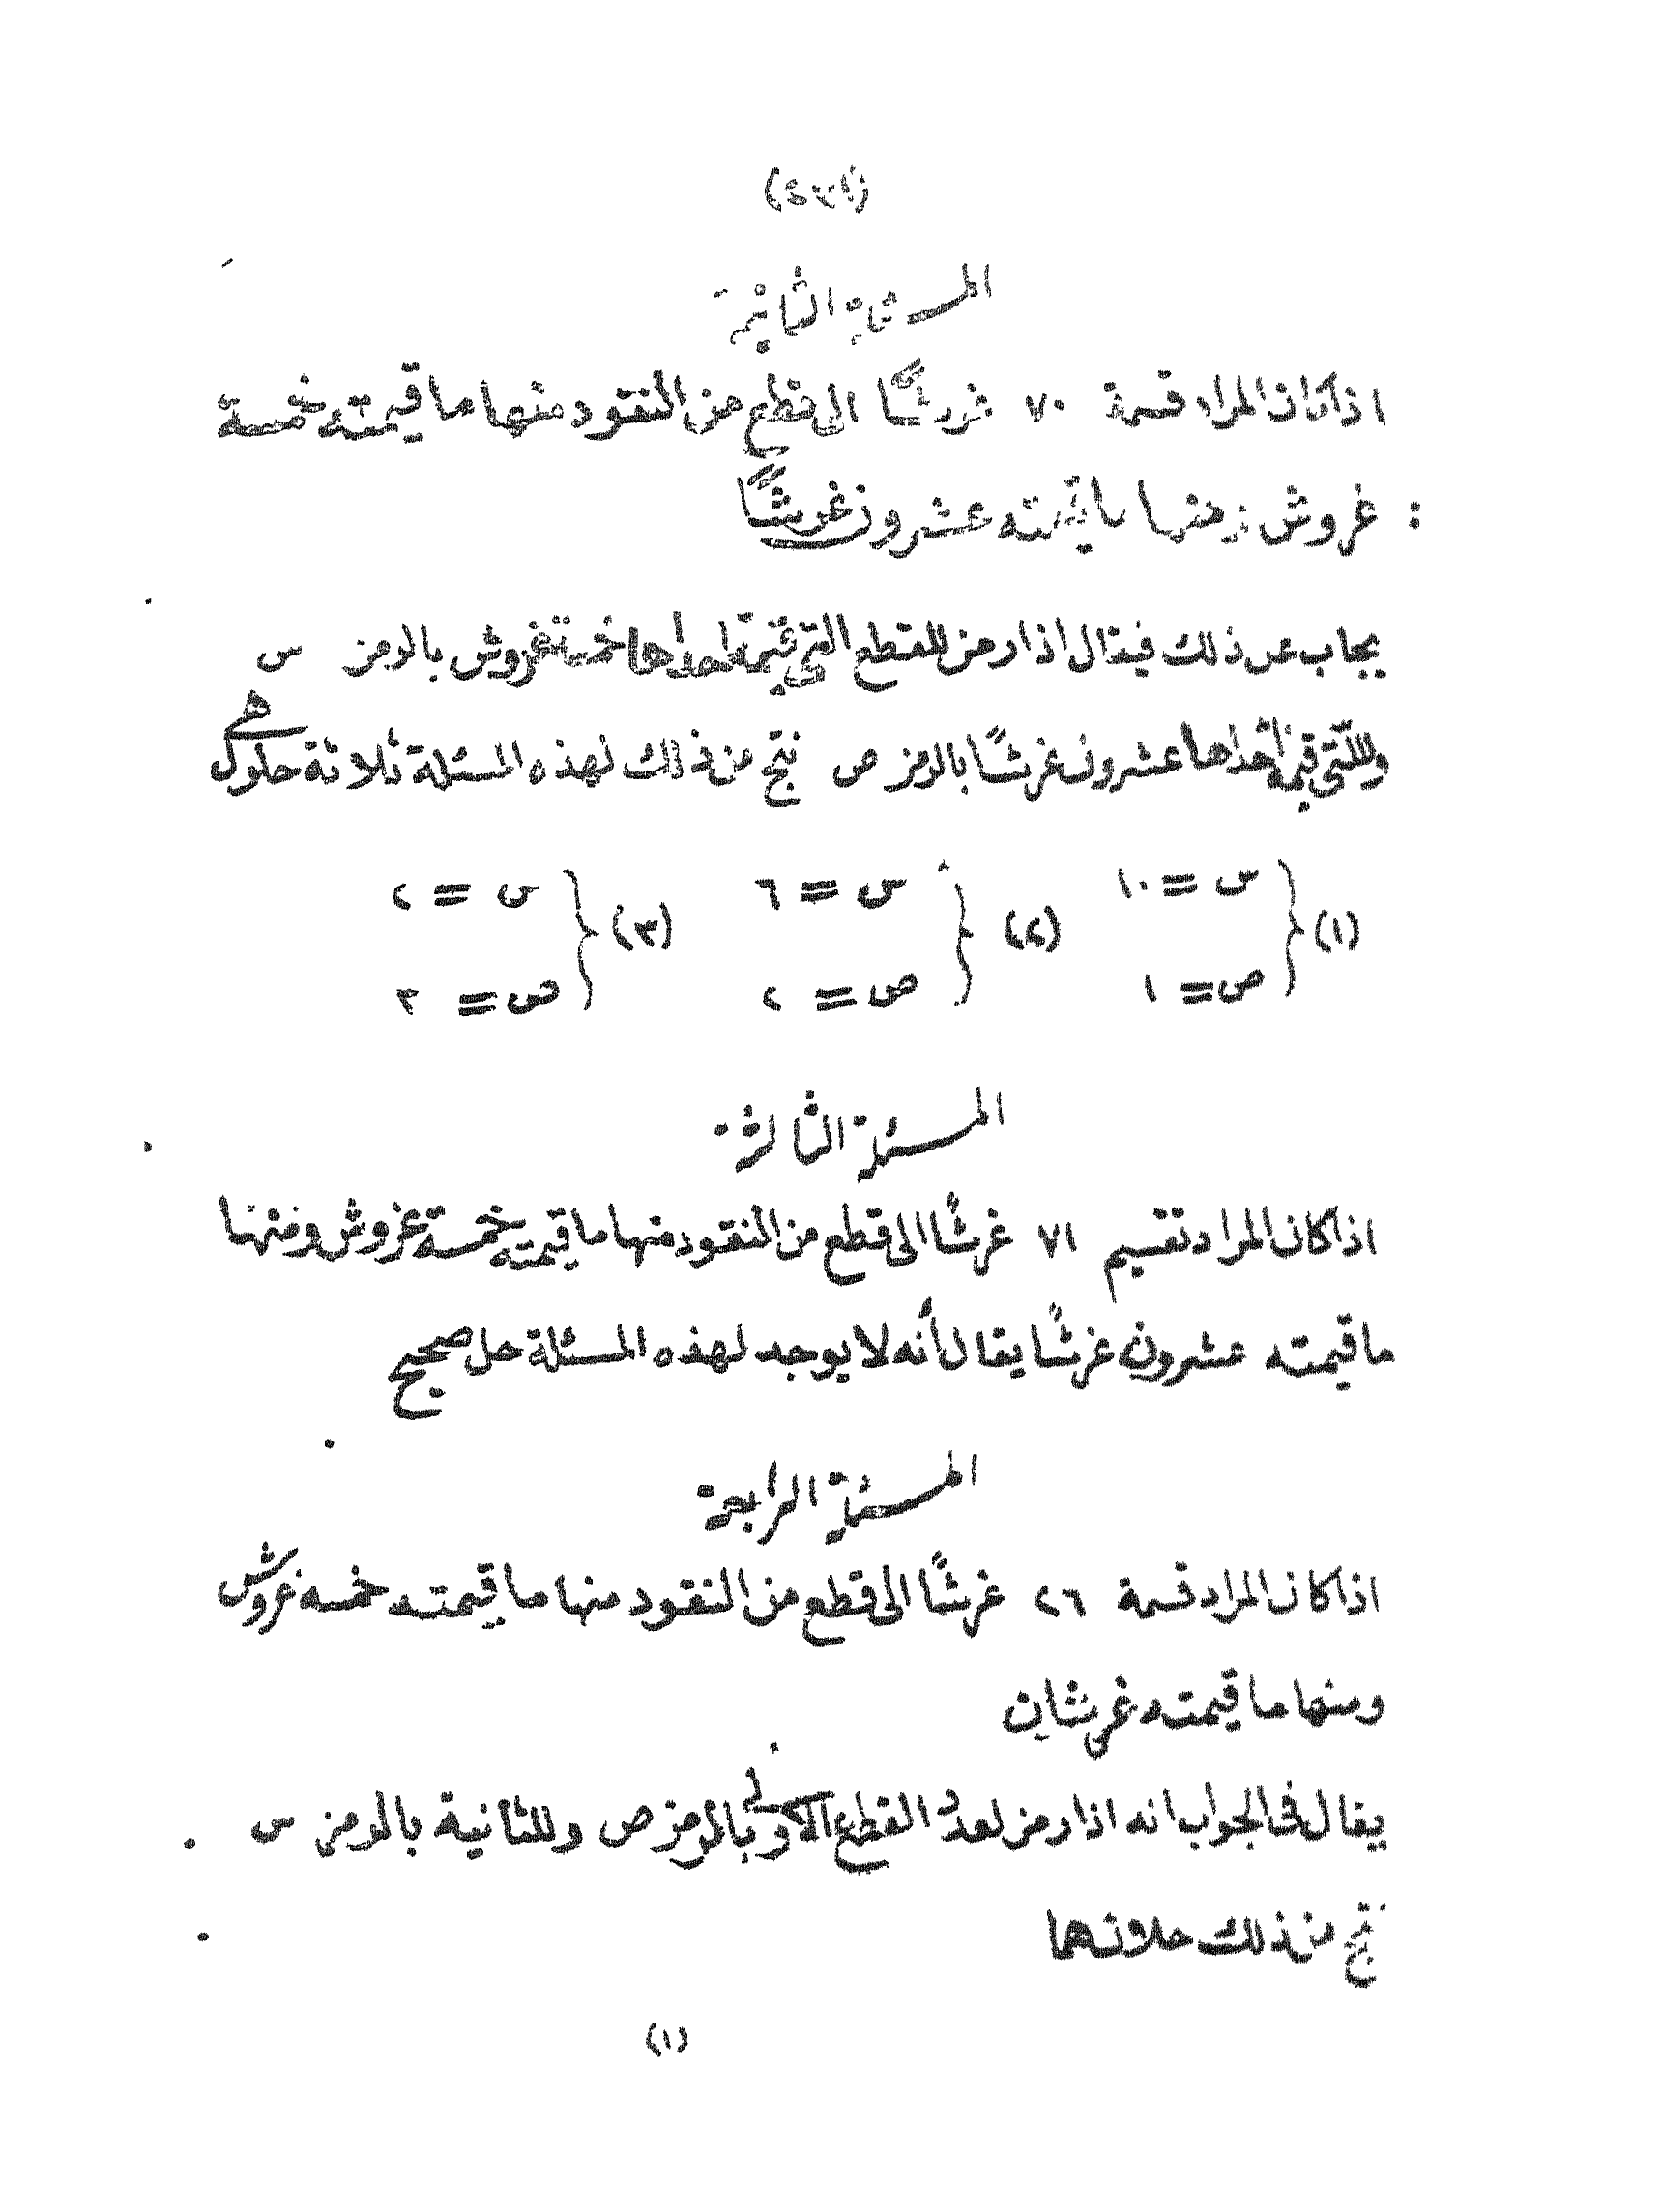 المسئلة الثانية
اذا كان المراد قسمة ٧٠ غرشًا الى قطع من النقود منها ما قيمته خمسة
غروش ومنها ما قيمته عشرون غرشًا
يجاب عن ذلك فيقال اذا رمز للقطع التى قيمة احداها خمسة غروش بالرمز س
وللتى قيمة احداها عشرون غرشًا بالرمز ص نتج من ذلك لهذه المسئلة ثلاثة حلول هى
(١) س = ١٠ (٢) س = ٦ (٣) س = ٢
ص = ١ ص = ٢ ص = ٣
المسئلة الثالثة
اذا كان المراد تقسيم ٧١ غرشًا الى قطع من النقود منها ما قيمته خمسة غروش ومنها
ما قيمته عشرون غرشًا يقال أنه لا يوجد لهذه المسئلة حل صحيح
المسئلة الرابعة
اذا كان المراد قسمة ٢٦ غرشًا الى قطع من النقود منها ما قيمته خمسه غروش
ومنها ما قيمته غرشان
يقال فى الجواب انه اذا رمز لعدد القطع الاولى بالرمز ص وللثانية بالرمز س
نتج من ذلك حلان هما
(١)